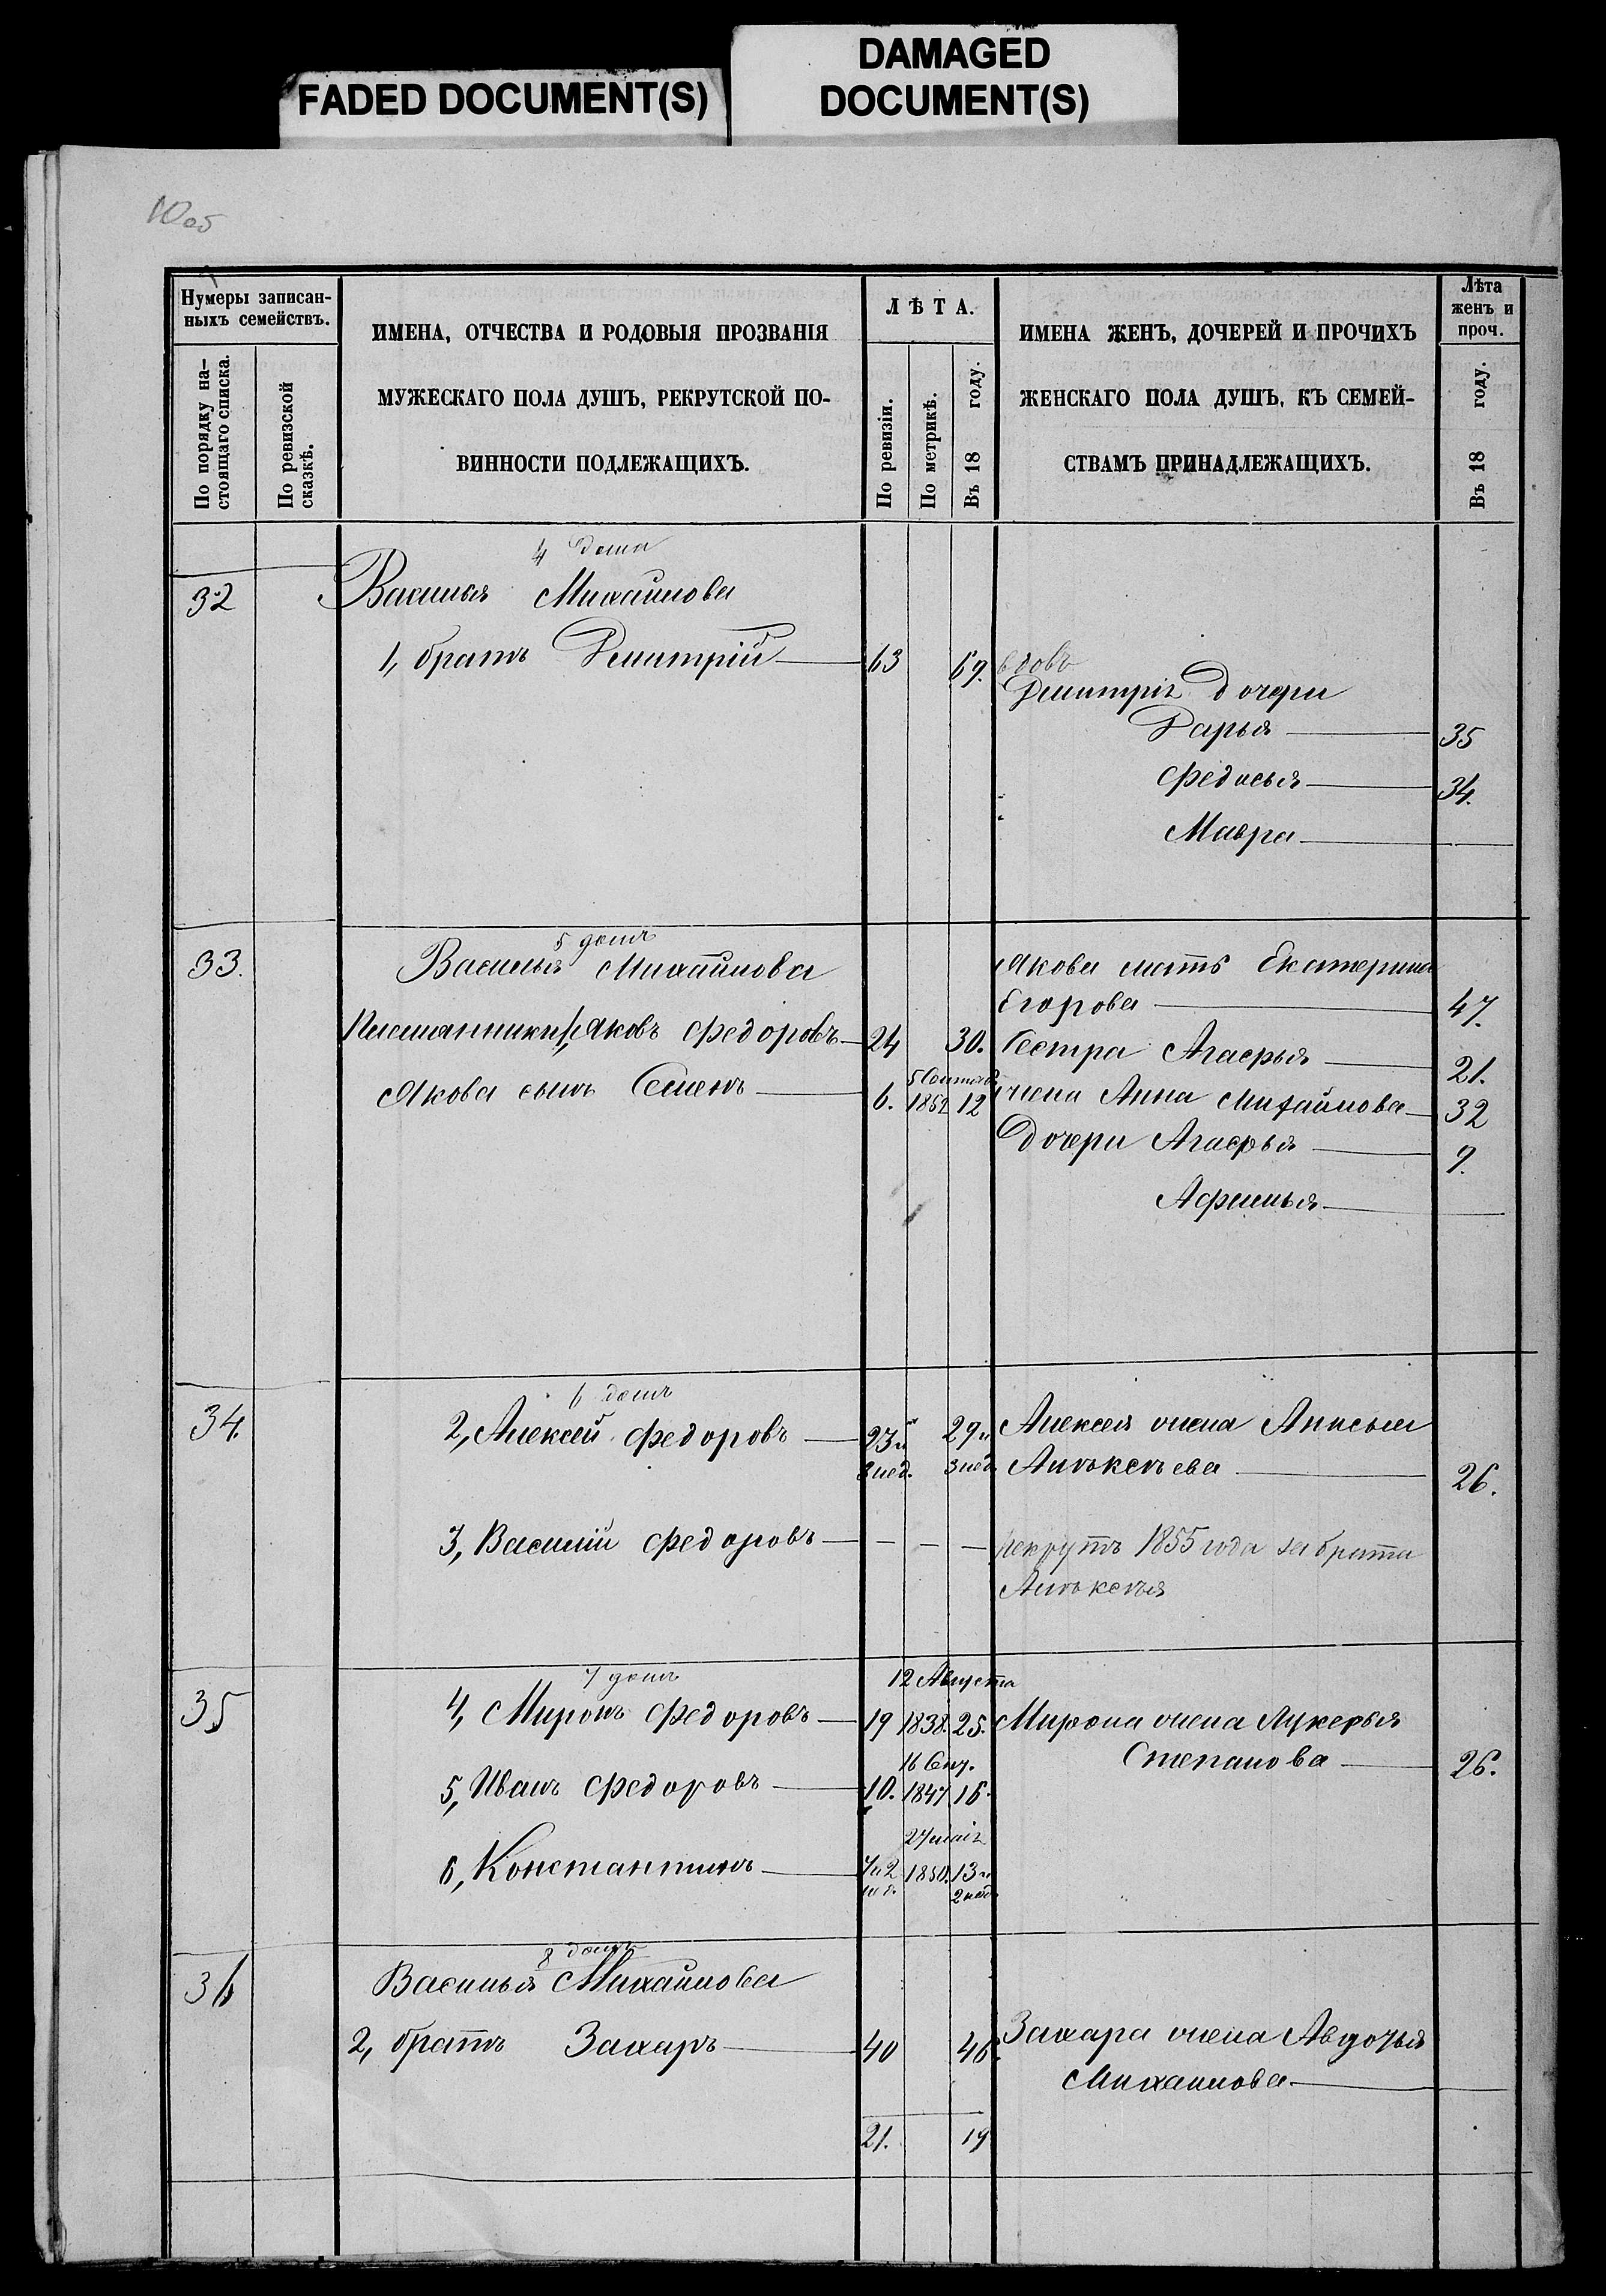 FADED DOCUMENT(S)
DAMAGED
DOCUMENT(S)
10об
Нумеры записан-
ныхъ семействъ.
По порядку на-
стоящаго списка.
По ревизской
сказкѣ.
ИМЕНА, ОТЧЕСТВА И РОДОВЫЯ ПРОЗВАНІЯ
МУЖЕСКАГО ПОЛА ДУШЪ, РЕКРУТСКОЙ ПО-
ВИННОСТИ ПОДЛЕЖАЩИХЪ.
ЛѢТА.
По ревизіи.
По метрикѣ.
Въ 18 году.
ИМЕНА ЖЕНЪ, ДОЧЕРЕЙ И ПРОЧИХЪ
ЖЕНСКАГО ПОЛА ДУШЪ, КЪ СЕМЕЙ-
СТВАМЪ ПРИНАДЛЕЖАЩИХЪ.
Лѣта
женъ и
проч.
Въ 18 году.
4 дома
32 Василья Михайлова
1, братъ Дмитрій 63 69. вдовъ
Дмитрія дочери
Дарья 35
Федосья 34.
Мавра
5 домъ
33. Василья Михайлова Якова мать Екатерина
Егорова 47.
Яковъ Федоровъ 24 30. Сестра Агафья 21.
5 Сентяб
Якова сынъ Семенъ 6. 1852 12 жена Анна Михайлова 32
Дочери Агафья 9.
Афимья
6 домъ
34. 2, Алексей Федоровъ 23 и 29 и Алексея жена Анисья
3 нед. 3 нед. 26.
3, Василий Федоровъ рекрутъ 1855 года за брата
7 домъ
12 Августа
35 4, Миронъ Федоровъ 19 1838. 25. Мирона жена Лукерья
Степанова 26.
16 Сен.
5, Иванъ Федоровъ 10. 1847 16
27 маія
6, Константинъ 7 и 2 1850. 13 и
нед. 2 нед.
8 домъ
36 Василья Михайлова
2, братъ Захаръ 40 46. Захара жена Авдотья
Михайлова
21. 19